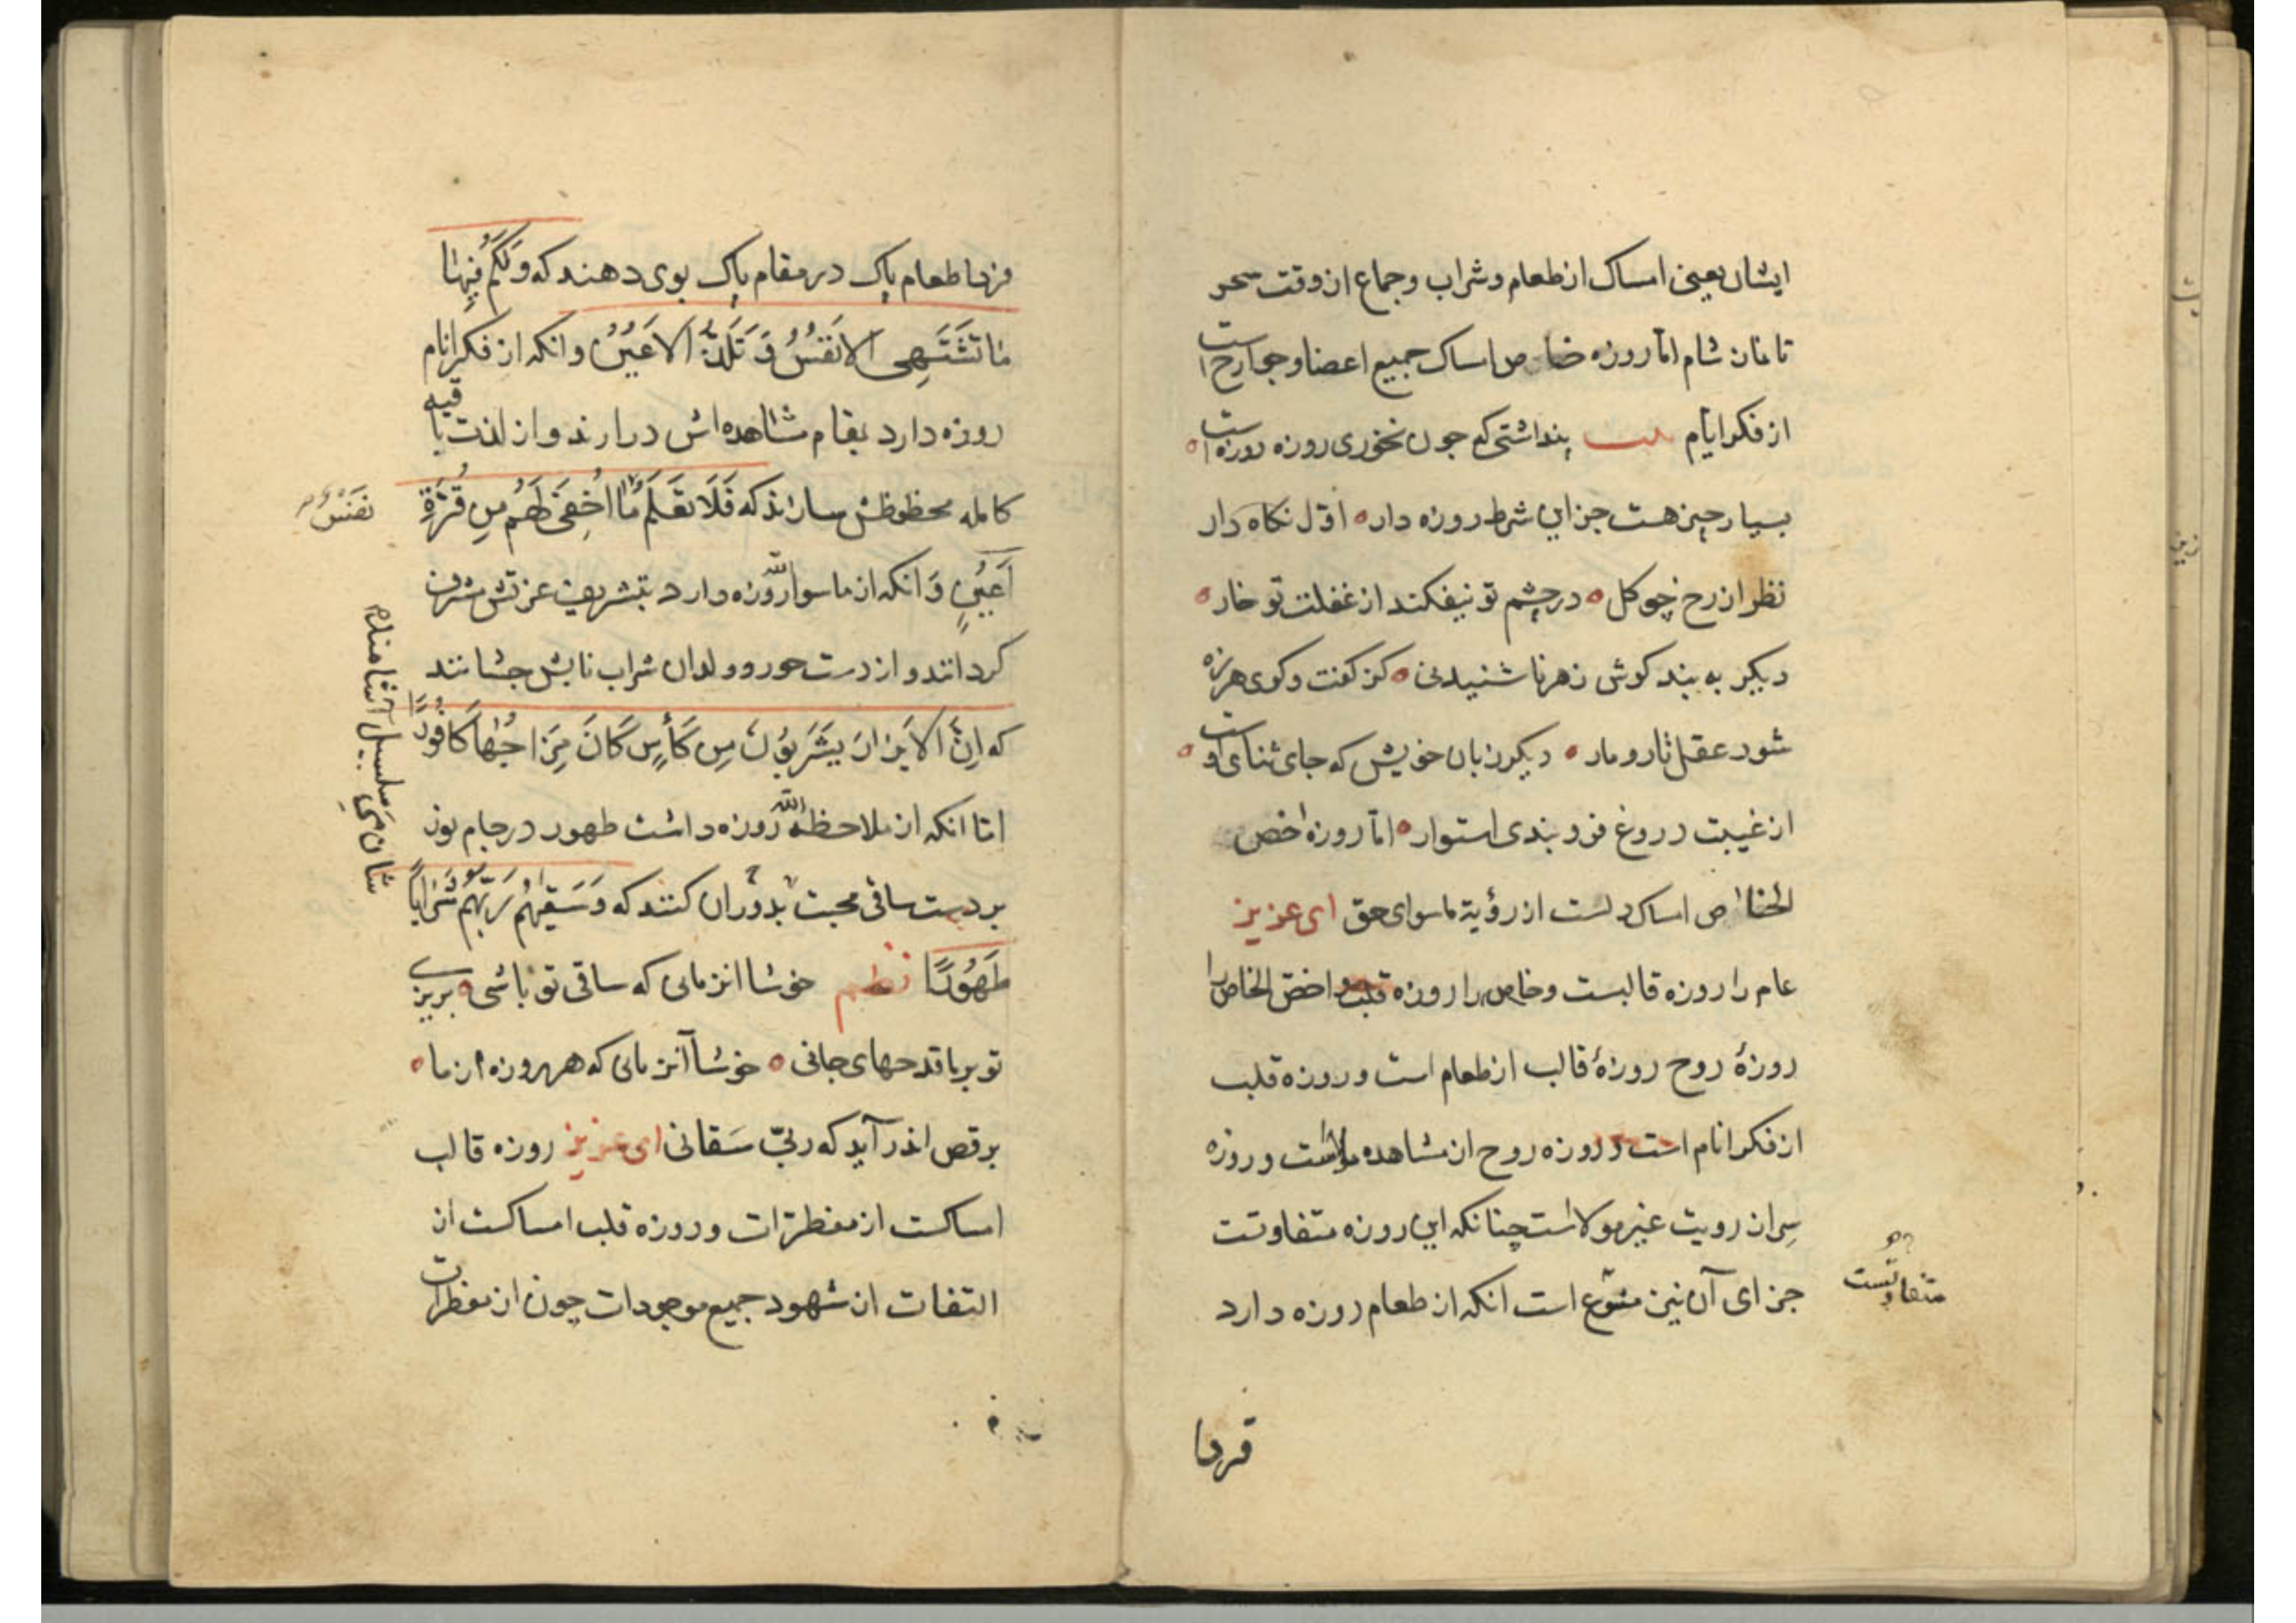 ایشان یعنی امساک از طعام و شراب و جماع از وقت سحر
تا نماز شام اما روزه خاص امساک جمیع اعضا و جوارح است
از فکر ایام بیت پنداشتی که چون نخوری روزه روزه است
بسیار چیز هست جز این شرط روزه دار اول نکاه دار
نظر از رخ چو کل در چشم تو نیفکند از غفلت تو خار
دیکر به بند کوش زهر ناشنیدنی کز کفت و کوی هرزه
شود عقل تار و مار دیکر زبان خویش که جای ثنای اوست
از غیبت دروغ فرو بندی استوار اما روزه اخص
الخاص امساک دلست از رؤیة ماسوای حق ای عزیز
عام را روزه قالبست و خاص را روزه قلب و اخص الخاص را
روزهٔ روح روزهٔ قالب از طعام است و روزه قلب
از فکر انام است و روزه روح از مشاهده است و روزه
سِر از رویت غیر مولاست چنانکه این روزه متفاوتست
جزای آن نیز متنوع است انکه از طعام روزه دارد
متفاوتست
فردا
فردا طعام پاک در مقام پاک بوی دهند که وَلَکُم فِیهَا
مَا تَشتَهِی الاَنفُسُ وَ تَلَذُّ الاَعیُنُ و انکه از فکر انام
روزه دارد بمقام مشاهده اش درارند و از لذت باقیه
کامله محظوظش سازند که فَلَا تَعلَمُ مَا اُخفِیَ لَهُم مِن قُرَّةِ
نَفسٌ
اَعیُنٍ وَ انکه از ما سوا الله روزه دارد بتشریف عزتش مشرف
کردانند و از دست حور و ولدان شراب نابش چشانند
که اِنَّ الاَبرَارَ یَشرَبُونَ مِن کَأسٍ کَانَ مِزَاجُهَا کَافُورًا
اما انکه از ملاحظه الله روزه داشت طهور در جام نور
بر دست ساقی محبت بدوران کنند که وَسَقٰیهُم رَبُّهُم شَرَابًا
طَهُورًا نظم خوشا انزمانی که ساقی تو باشی بریزی
تو بر ما قدحهای جانی خوشا آنزمانی که هر روزه از ما
برقص اندر آید که ربّی سَقانی ای عزیز روزه قالب
امساکست از مفطرات و روزه قلب امساکست از
التفات از شهود جمیع موجودات چون از مفطرات